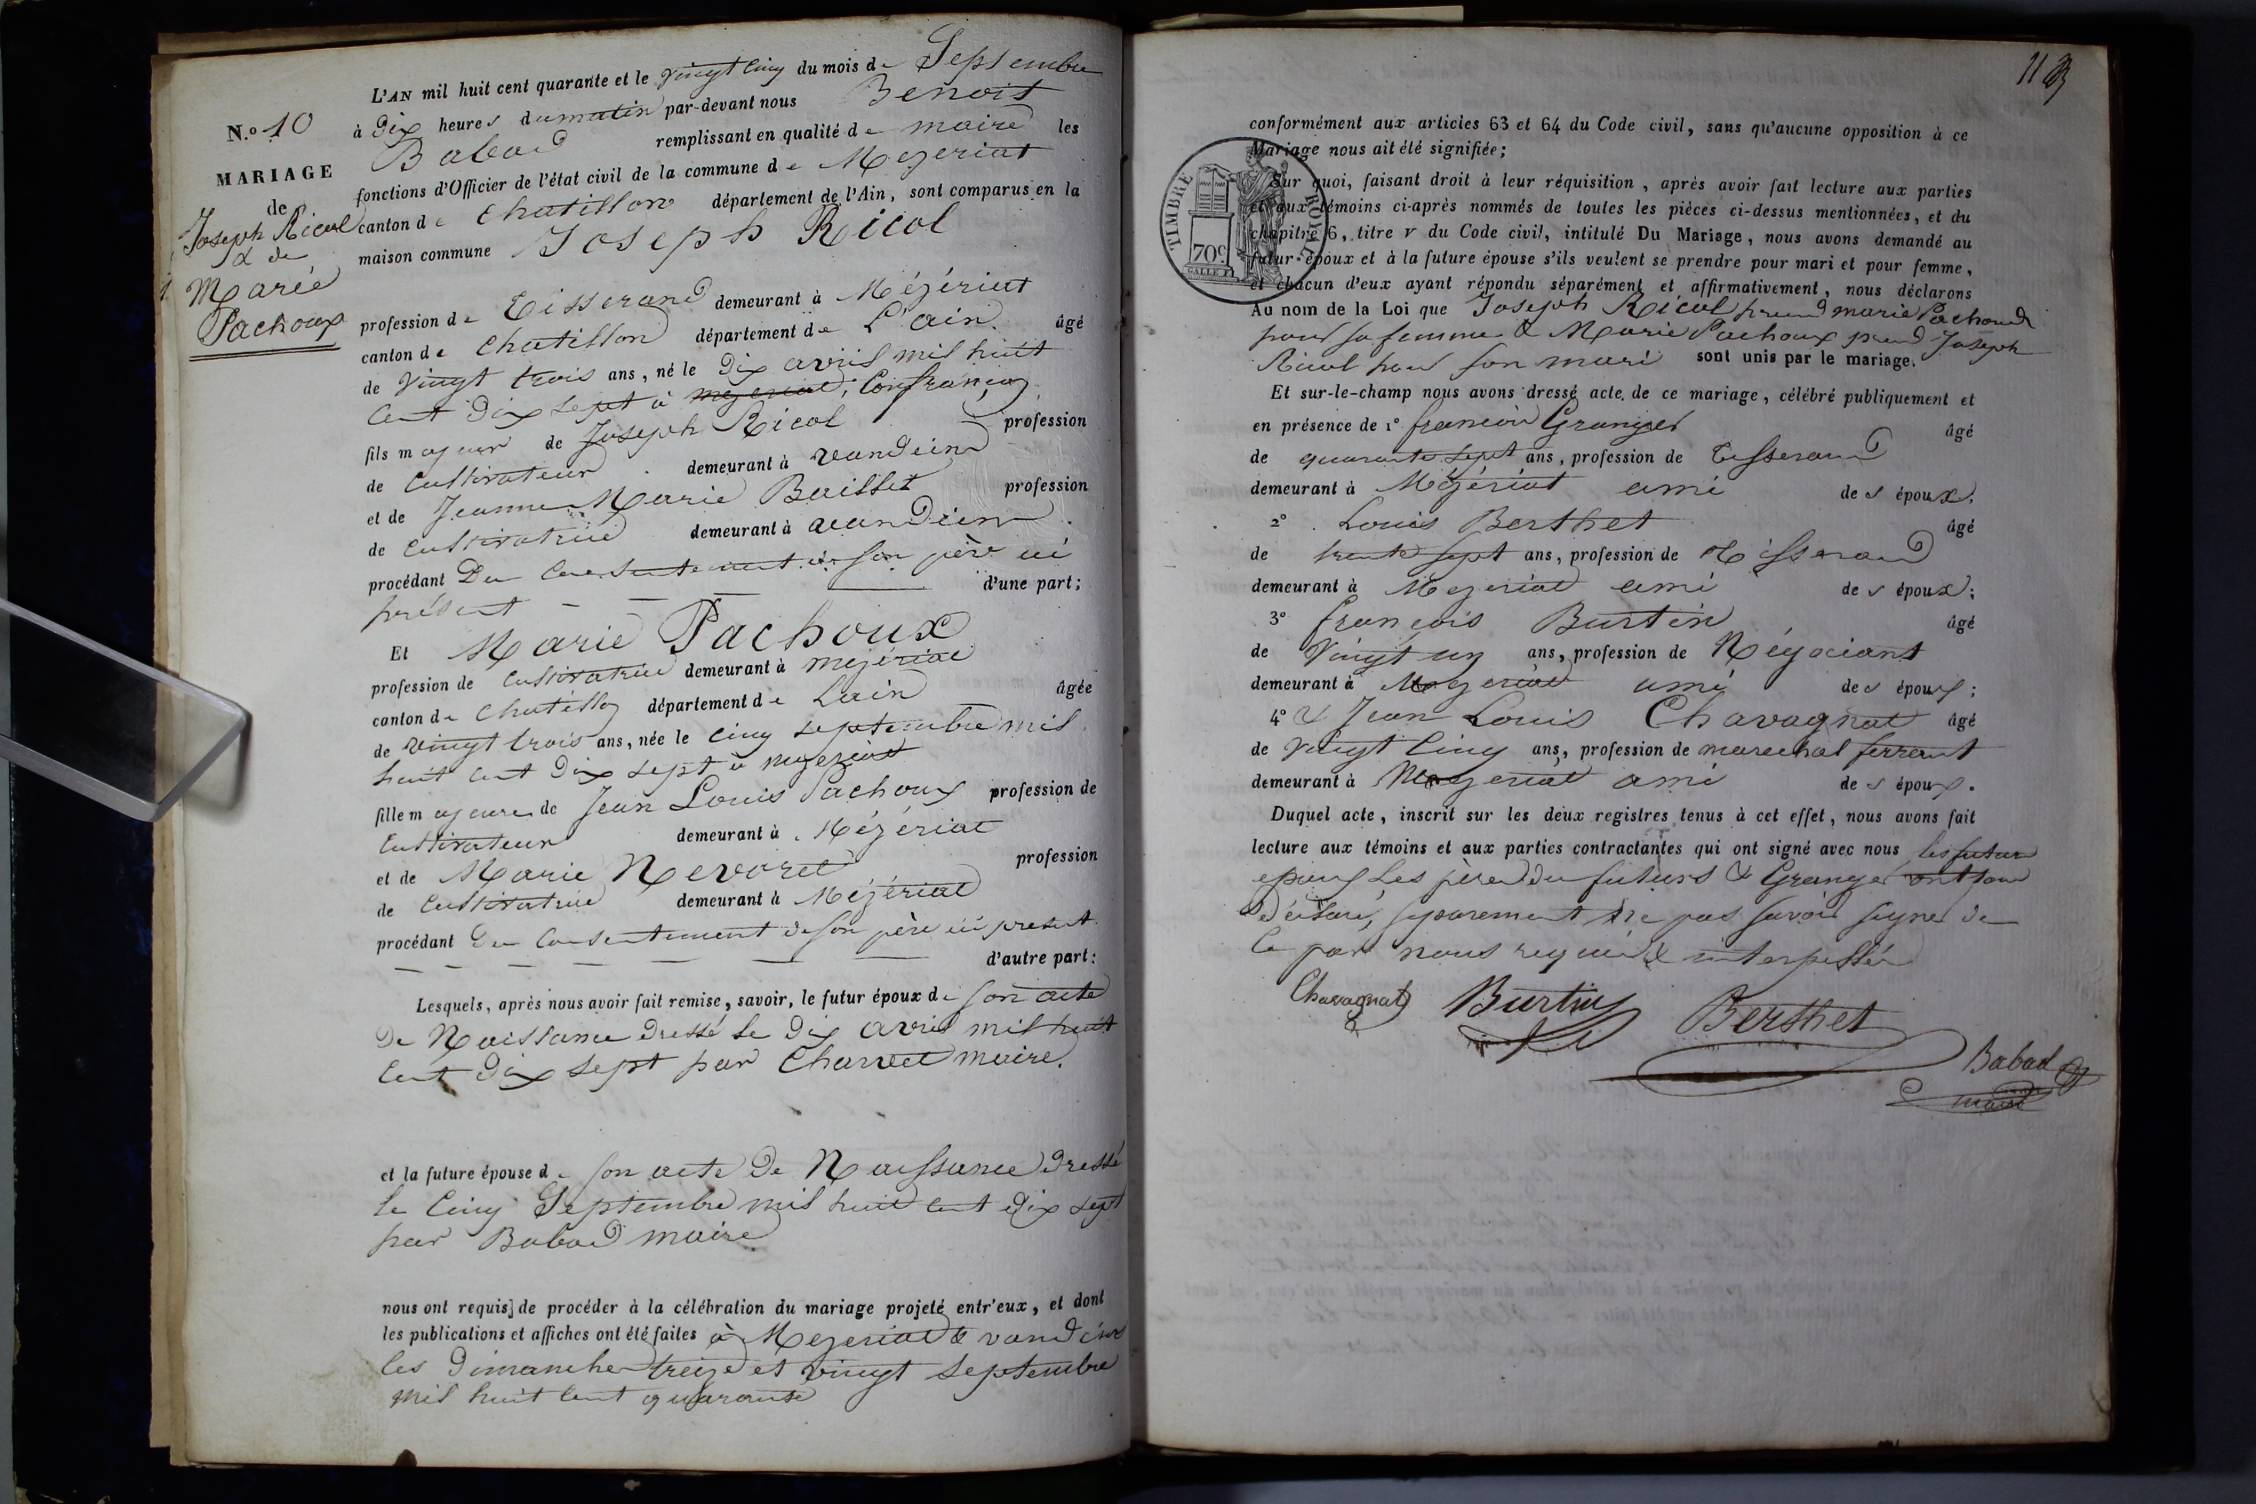 L'AN mil huit cent quarante et le vingt cinq du mois de Septembre
à dix heures du matin par-devant nous Benoit
Babad remplissant en qualité de maire les
fonctions d'Officier de l'état civil de la commune de Mezeriat
canton de Chatillon département de l'Ain, sont comparus en la
maison commune Joseph Ricol
N.º 10
MARIAGE
de
Joseph Ricol
& de
Marie
Pachoux
profession de Tisserand demeurant à Mézériat
canton de Chatillon département de L'ain âgé
de vingt trois ans, né le dix avril mil huit
cent dix sept à mezeriat, Confrançon
fils majeur de Joseph Ricol profession
de Cultivateur demeurant à vandeins
et de Jeanne Marie Baisset profession
de cultivatrice demeurant à vandeins
procédant Du Consentement de son père ici
présent d'une part;
Et Marie Pachoux
profession de cultivatrice demeurant à mézériat
canton de Chatillon département de Lain âgée
de vingt trois ans, née le cinq septembre mil
huit cent dix sept à mezeriat
fille majeure de Jean Louis Pachoux profession de
Cultivateur demeurant à Mézériat
et de Marie Nevoret profession
de Cultivatrice demeurant à Mézériat
procédant du Consentement de son père ici présent
d'autre part;
Lesquels, après nous avoir fait remise, savoir, le futur époux de son acte
De Naissance dressé le dix avril mil huit
cent dix sept par Charvet maire.
et la future épouse de son acte de Naissance dressé
le Cinq Septembre mil huit cent dix sept
par Babad maire
nous ont requis de procéder à la célébration du mariage projeté entr'eux, et dont
les publications et affiches ont été faites à Mezeriat & vandeins
les Dimanches treize et vingt septembre
mil huit cent quarante
11
conformément aux articles 63 et 64 du Code civil, sans qu'aucune opposition à ce
Mariage nous ait été signifiée;
TIMBRE ROYAL
70c
Sur quoi, faisant droit à leur réquisition, après avoir fait lecture aux parties
et aux témoins ci-après nommés de toutes les pièces ci-dessus mentionnées, et du
chapitre 6, titre v du Code civil, intitulé Du Mariage, nous avons demandé au
futur époux et à la future épouse s'ils veulent se prendre pour mari et pour femme,
et chacun d'eux ayant répondu séparément et affirmativement, nous déclarons
Au nom de la Loi que Joseph Ricol prend marie Pachoux
pour sa femme & Marie Pachoux prend Joseph
Ricol pour son mari sont unis par le mariage.
Et sur-le-champ nous avons dressé acte de ce mariage, célébré publiquement et
en présence de 1º francois Granger âgé
de quarante sept ans, profession de Tisserand
demeurant à Mézériat ami des époux;
2º Louis Berthet âgé
de trente sept ans, profession de Tisserand
demeurant à Mezeriat ami des époux;
3º francois Burtin âgé
de Vingt un ans, profession de Négociant
demeurant à Mezeriat ami des époux;
4º & Jean Louis Chavagnat âgé
de vingt cinq ans, profession de marechal ferrant
demeurant à Mezeriat ami des époux.
Duquel acte, inscrit sur les deux registres tenus à cet effet, nous avons fait
lecture aux témoins et aux parties contractantes qui ont signé avec nous les futurs
epoux Les pères des futurs & Granger ont tous
déclaré, séparement Ne pas savoir signer de
ce par nous requis & interpellés
Chavagnat Burtin Berthet
Babad
maire